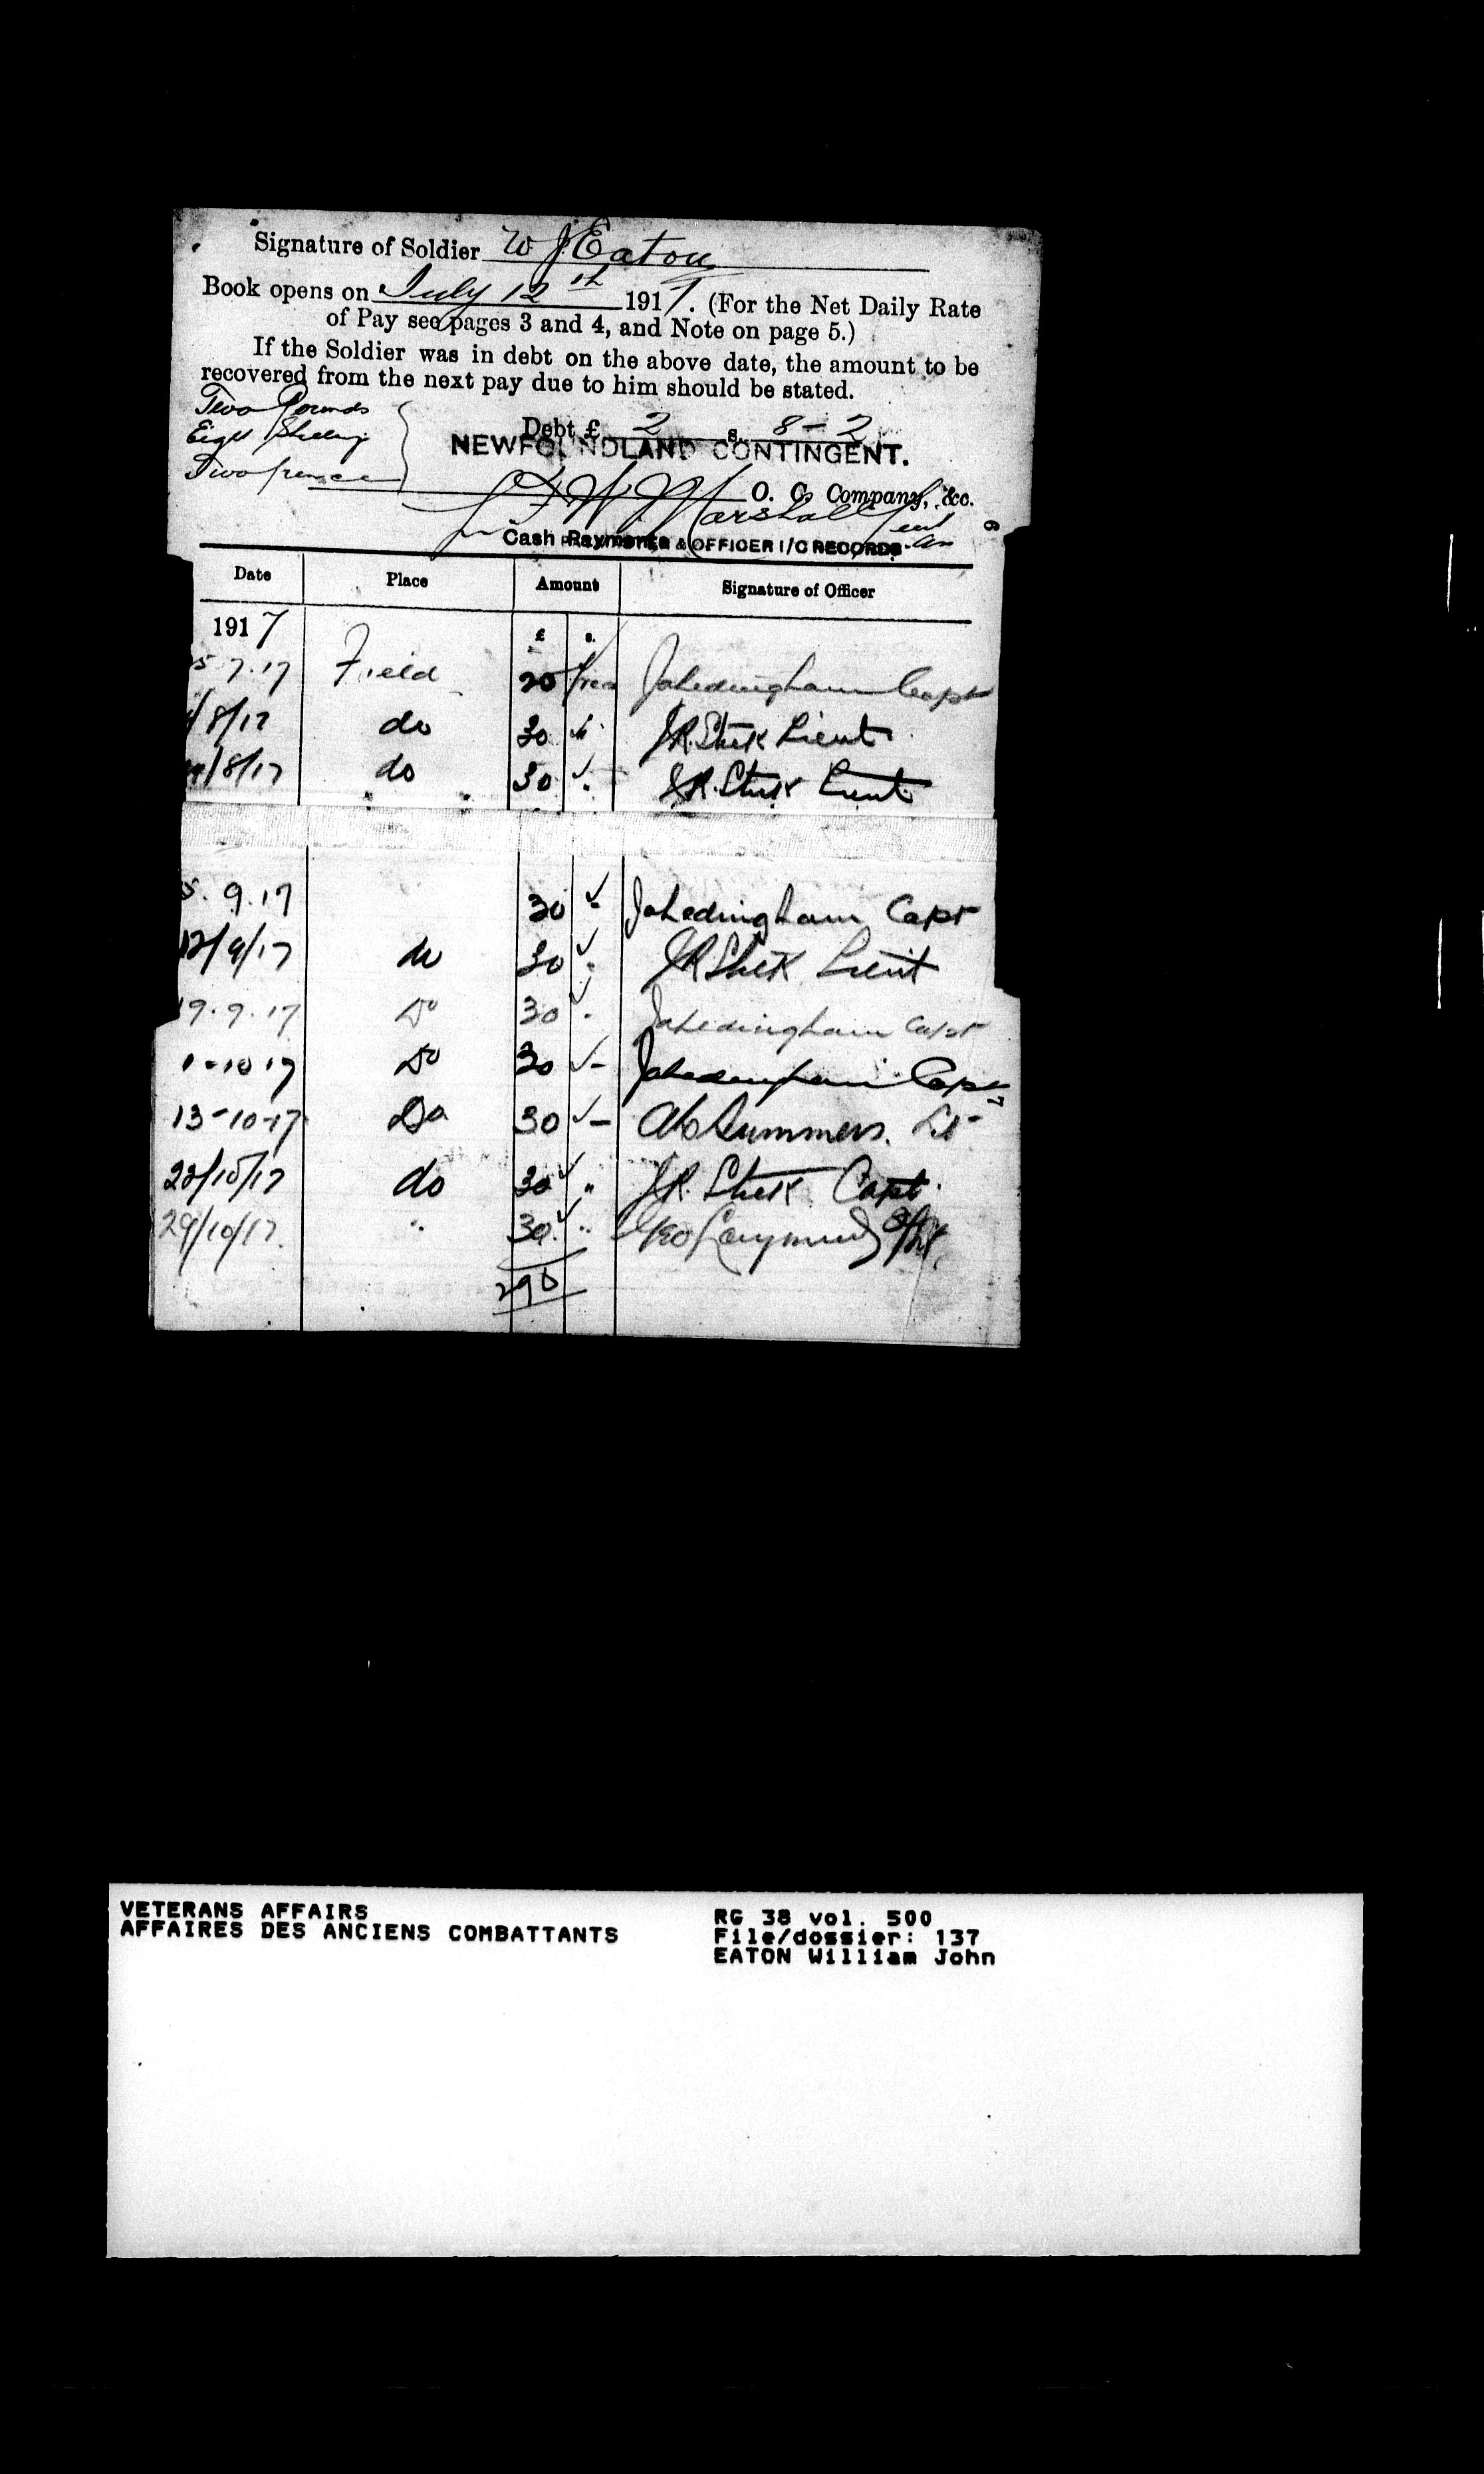 Signature of Soldier W J Eaton
Book opens on July 12th 1917. (For the Net Daily Rate
of Pay see pages 3 and 4, and Note on page 5.)
If the Soldier was in debt on the above date, the amount to be
recovered from the next pay due to him should be stated.
Two Pounds
Eight Shillings
Two pence
Debt £ 2 s. 8-2
NEWFOUNDLAND CONTINGENT.
Marshall Lieut
O. C. Company, &c.
6
Cash Payments
& OFFICER I/C RECORDS
Date Place Amount Signature of Officer
1917 £ s.
5.7.17 Field 20 Capt
/8/17 do 30 Lieut
/8/17 do 30 Lieut
5.9.17 30 Capt
12/9/17 do 30 Lieut
19.9.17 Do 30 Capt
1-10 17 Do 30 Capt
13-10-17 Do 30 Summers. Lt
22/10/17 do 30 Capt
29/10/17. " 30 "
290
VETERANS AFFAIRS
AFFAIRES DES ANCIENS COMBATTANTS
RG 38 vol. 500
File/dossier: 137
EATON William John